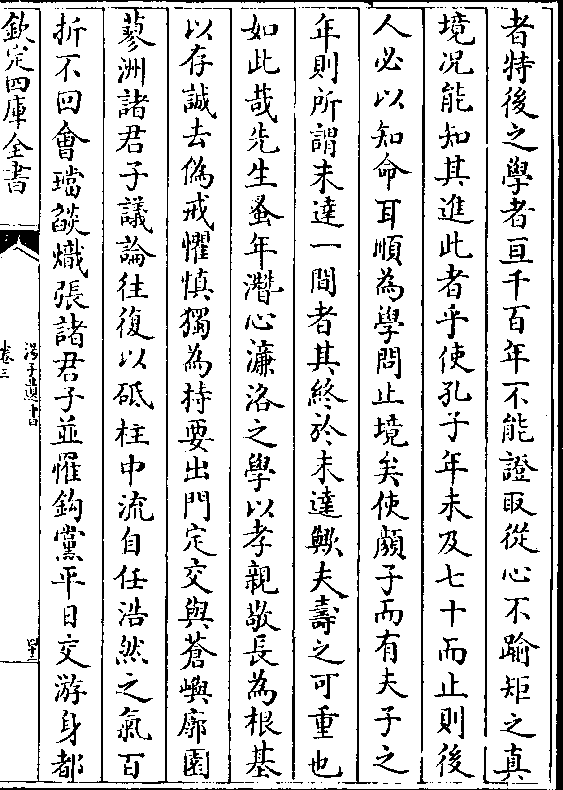 者特後之學者亘千百年不能證取從心不踰矩之真
境况能知其進此者乎使孔子年未及七十而止則後
人必以知命耳順為學問止境矣使顔子而有夫子之
年則所謂未達一間者其終於未達歟夫壽之可重也
如此哉先生蚤年濳心濂洛之學以孝親敬長為根基
以存誠去偽戒懼慎獨為持要出門定交與蒼嶼廓園
蓼洲諸君子議論往復以砥柱中流自任浩然之氣百
折不回會璫燄熾張諸君子並罹鈎黨平日交游身都
欽定四庫全書
卷三